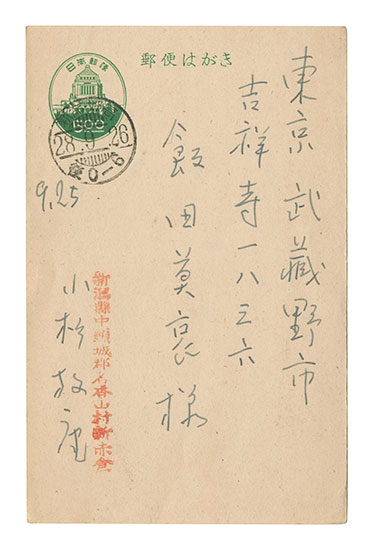 郵便はがき
日本郵便
500
28.9.26
0-6
東京 武蔵野市
吉祥寺一八三六
飯田莫哀様
9.25
新潟縣中頸城郡名香山村新赤倉
小杉放庵